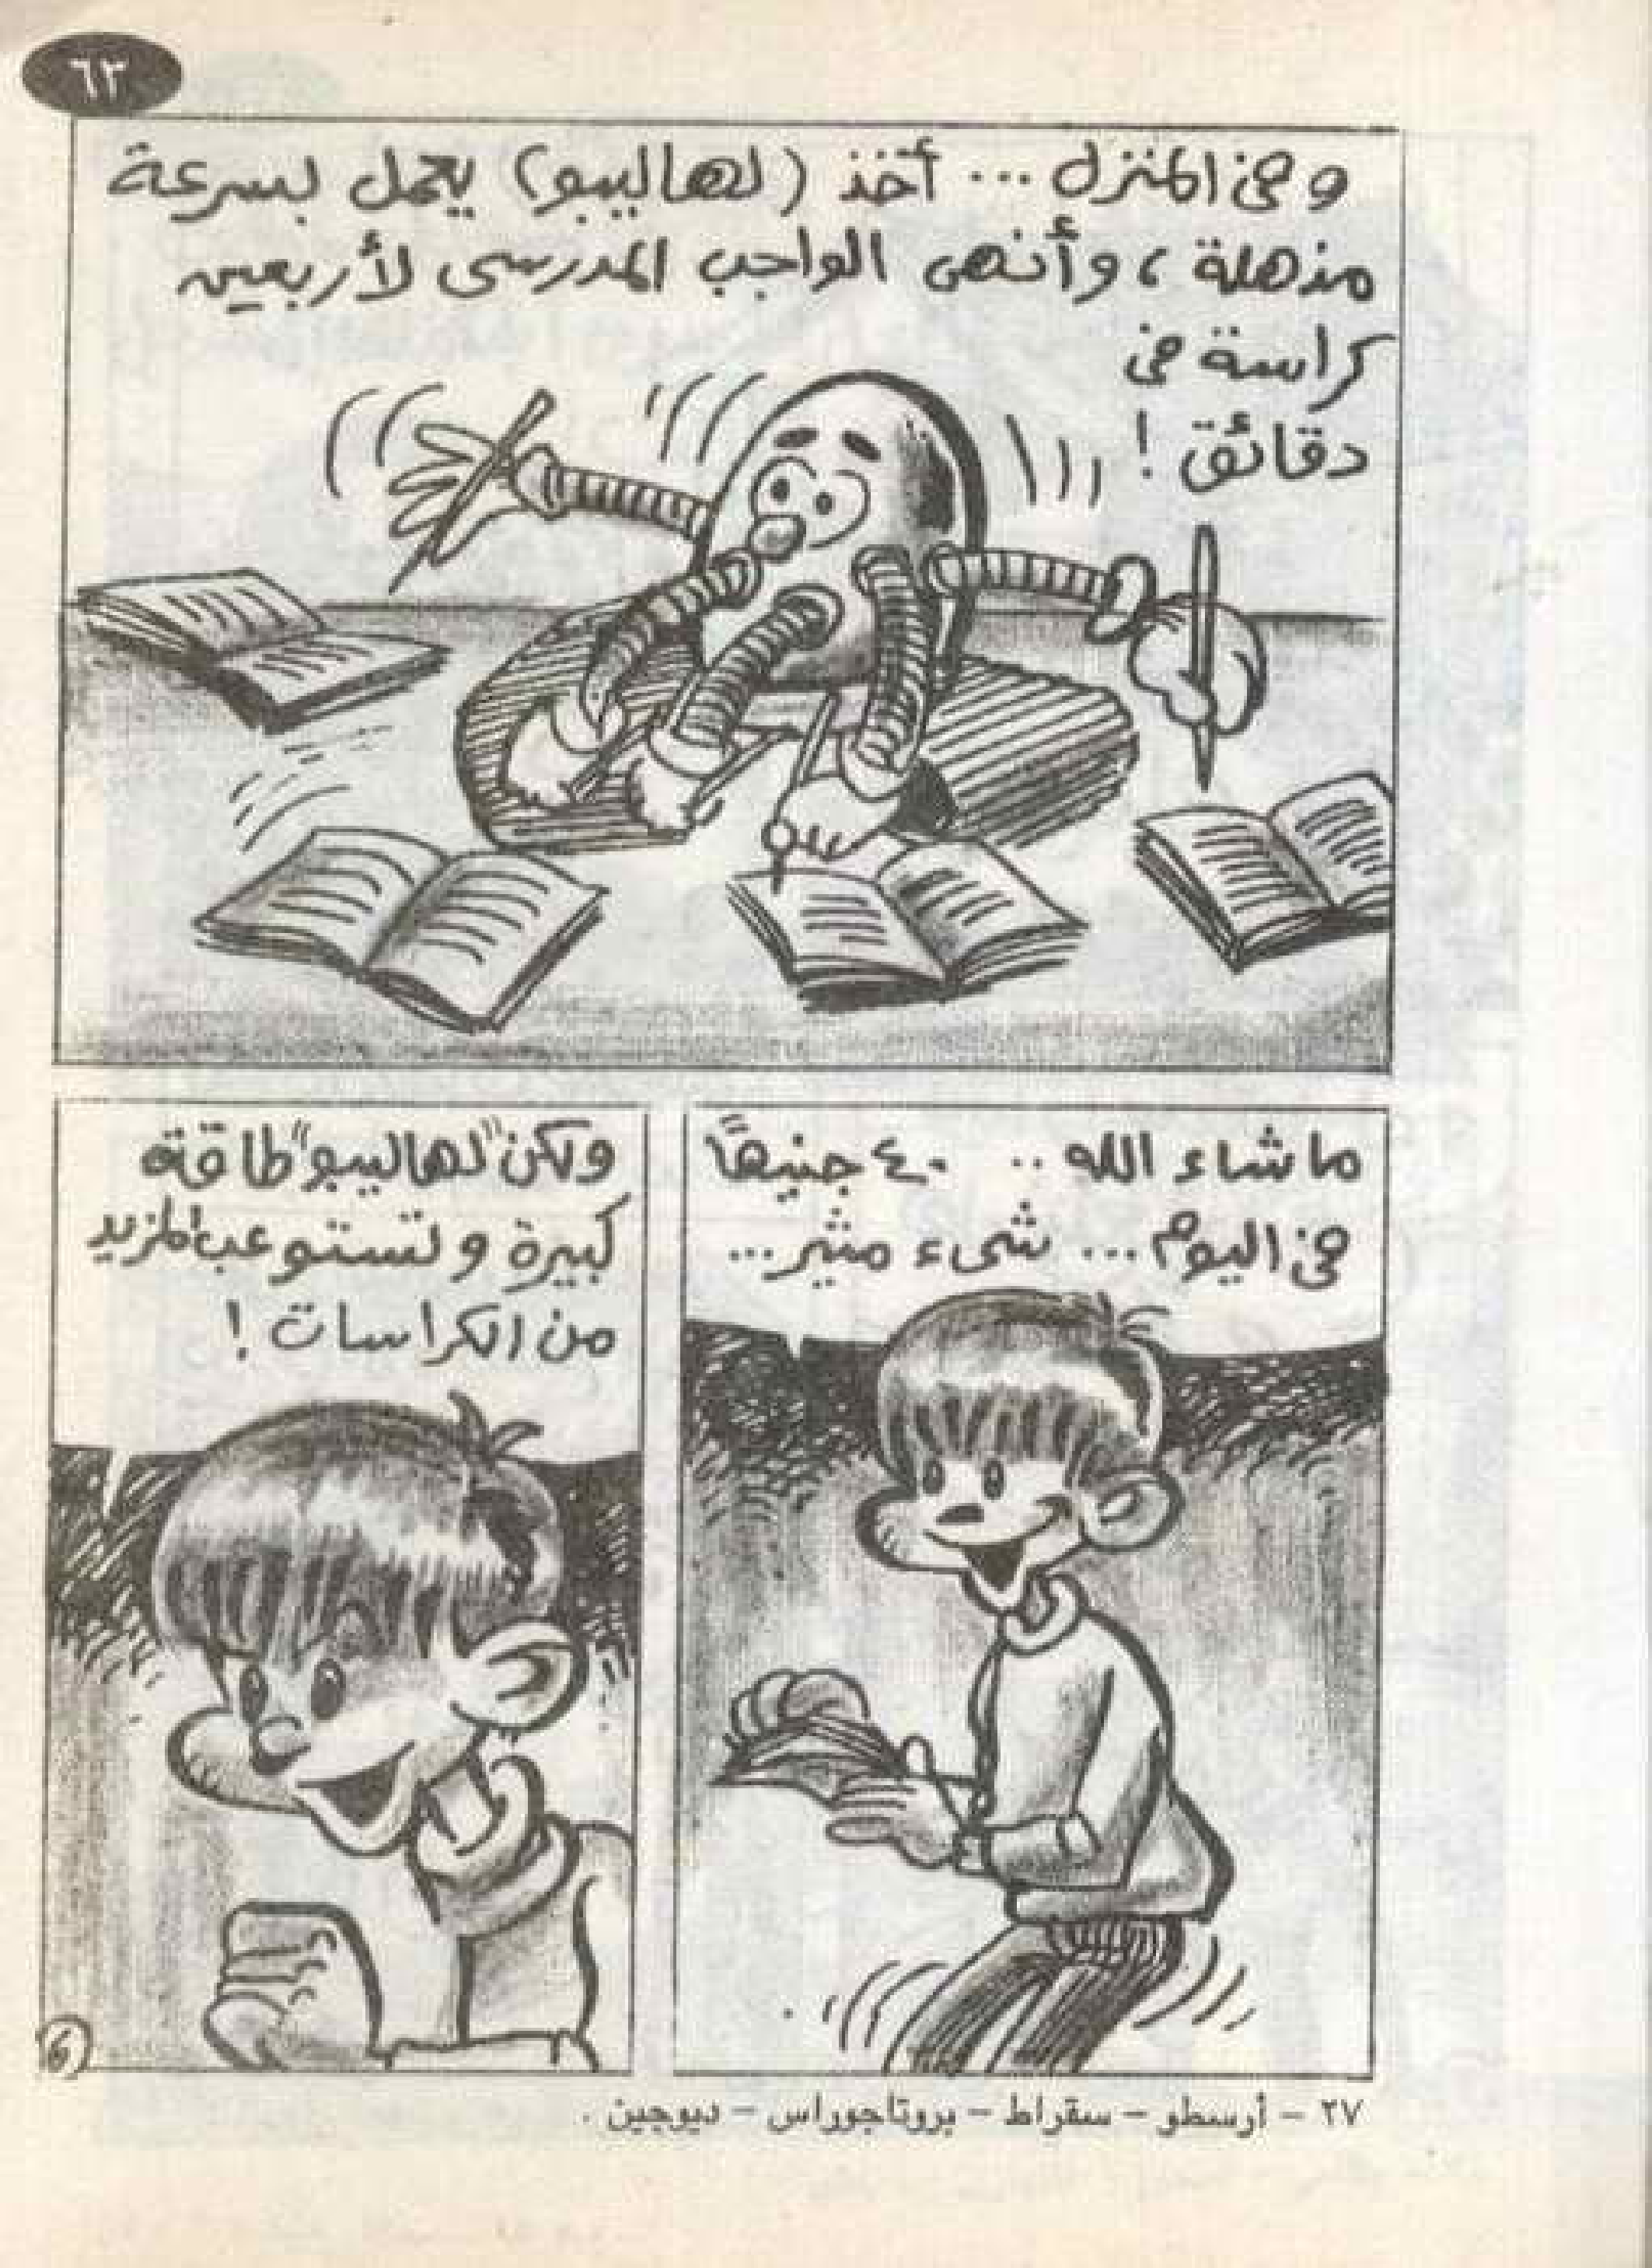 ٦٣
وفى المنزل ... أخذ (لهاليبو) يعمل بسرعة
مذهلة ، وأنهى الواجب المدرسى لأربعين
كراسة فى
دقائق !
ما شاء الله .. ٤٠ جنيهًا
فى اليوم ... شىء مثير ...
ولكن "لهاليبو" طاقة
كبيرة وتستوعب المزيد
من الكراسات !
6
٢٧ – أرسطو – سقراط – بروتاجوراس – ديوجين .